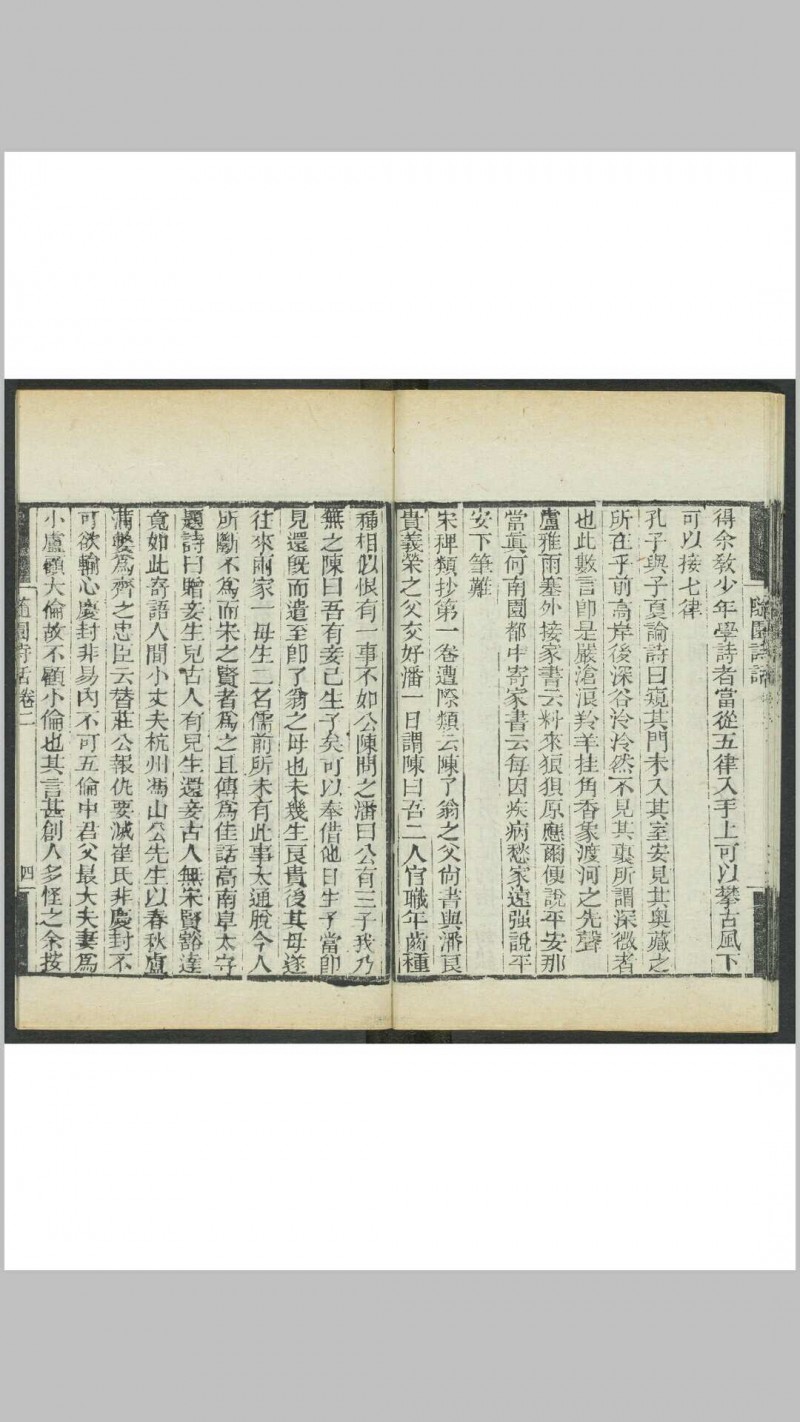 隨園詩話
得余教少年學詩者當從五律入手上可以攀古風下
可以接七律
孔子與子夏論詩曰窺其門未入其室安見其奧藏之
所在乎前高岸後深谷泠泠然不見其裏所謂深微者
也此數言即是嚴滄浪羚羊挂角香象渡河之先聲
盧雅雨塞外接家書云料來狠狽原應爾便說平安那
當眞何南園都中寄家書云每因疾病愁家遠强說平
安下筆難
宋稗類抄第一卷遭際類云陳了翁之父尙書與潘良
貴義榮之父交好潘一日謂陳曰吾二人官職年齒種
種相似恨有一事不如公陳問之潘曰公有三子我乃
無之陳曰吾有妾已生子矣可以奉借他日生子當即
見還旣而遣至即了翁之母也未幾生良貴後其母遂
往來兩家一母生二名儒前所未有此事太通脫今人
所斷不爲而宋之賢者爲之且傳爲佳話高南阜太守
題詩曰贈妾生兒古人有兒生還妾古人無宋賢豁達
竟如此寄語人間小丈夫杭州馮山公先生以春秋盧
蒲嫳爲齊之忠臣云替莊公報仇要滅崔氏非慶封不
可欲輸心慶封非易內不可五倫中君父最大夫妻爲
小盧顧大倫故不顧小倫也其言甚創人多怪之余按
隨園詩話卷二
四